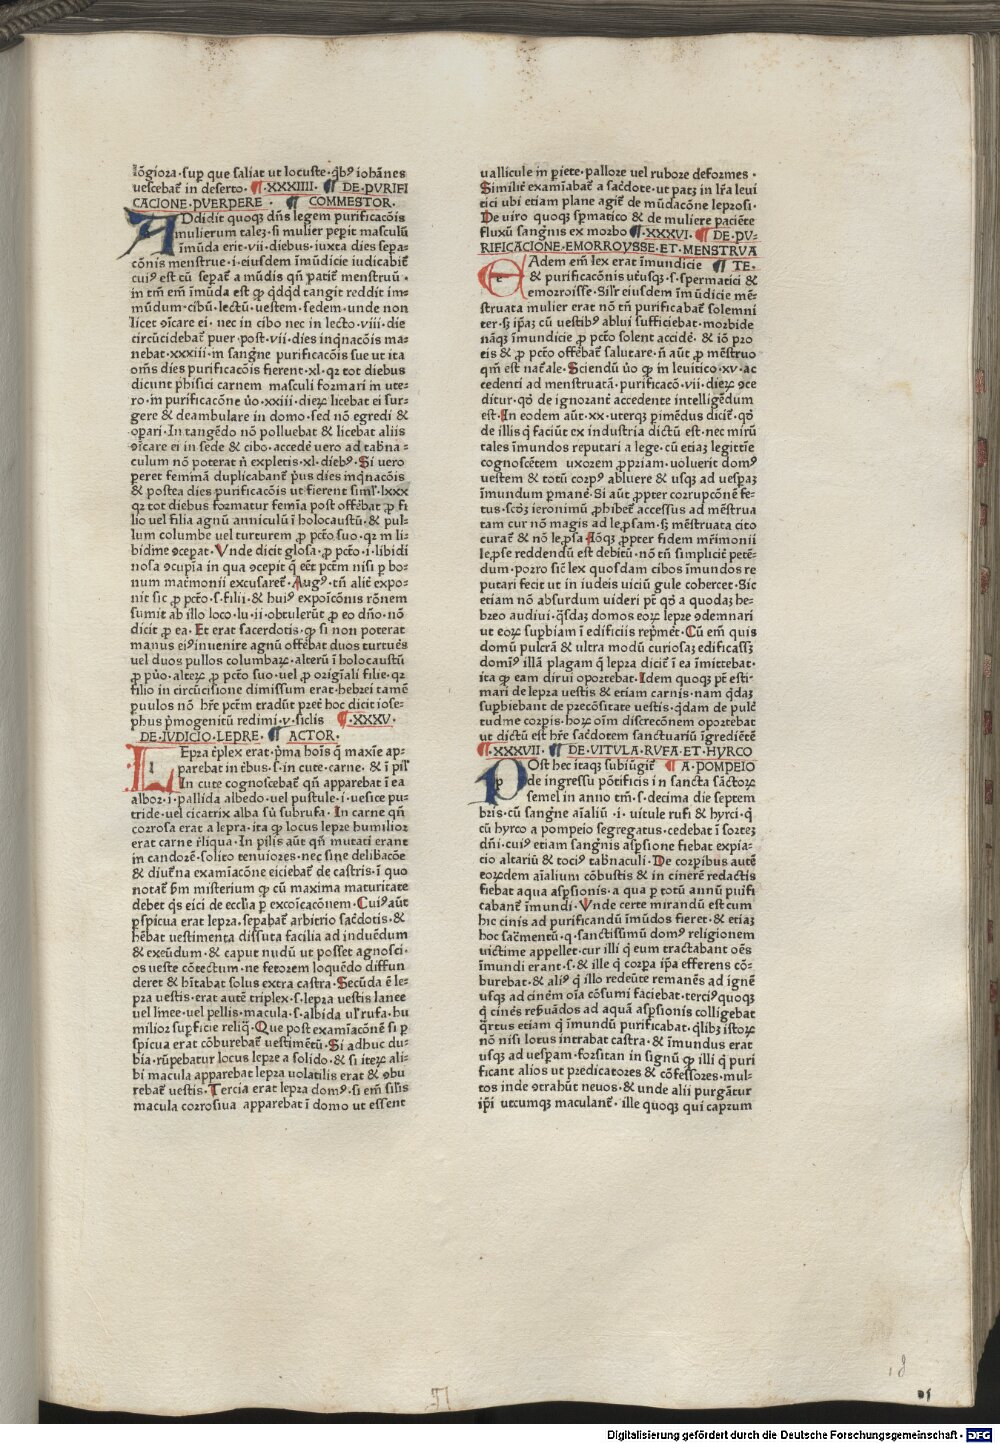 lōgiora·sup que saliāt ut locuste·q̄bꝰ iohānes
uescebat̄ in deserto· ¶·XXXIIII· ¶ DE·PVRIFI
CACIONE·PVERPERE· ¶ COMMESTOR·
ADdidit quoqꝫ dn̄s legem purificacōis
mulierum taleꝫ·si mulier peꝑit masculū
īmūda erit·vii·diebus·iuxta dies sepa-
cōnis menstrue·i·eiusdem īmūdicie iudicabit̄
cuiꝰ est cū seꝑat̄ a mūdis qn̄ patit̄ menstruū·
in tm̄ em̄ īmūda est ꝙ qͥdqͥd tangit reddit im-
mūdum·cibū·lectū·uestem·sedem·unde non
licet ꝯicare ei·nec in cibo nec in lecto·viii·die
circūcidebat̄ puer·post·vii·dies inqͥnacōis ma-
nebat·xxxiii·in sangͥne purificacōis sue ut ita
om̄s dies purificacōis fierent·xl·qꝛ tot diebus
dicunt phisici carnem masculi formari in ute-
ro·in purificacōne ūo·xxiii·dieꝝ licebat ei sur-
gere & deambulare in domo·sed nō egredi &
oꝑari·In tangēdo nō polluebat & licebat aliis
ꝯicare ei in sede & cibo·accedē uero ad tab̄na-
culum nō poterat n̄ expletis·xl·diebꝰ·Si uero
ꝑeret feminā duplicabant̄ p̄us dies inqͥnacōis
& postea dies purificacōis ut fierent siml̄·lxxx
qꝛ tot diebus formatur femīa post offēbat ꝓ fi
lio uel filia agnū anniculū ī holocaustū·& pul-
lum columbe uel turturem ꝓ pctō suo·qꝛ in li-
bidine ꝯceꝑat·Vnde dicit glosa·ꝓ pctō·i·libidi
nosa ꝯcupīa in qua ꝯcepit q̄ eēt pctm̄ nisi ꝑ bo-
num mat̄monii excusaret̄·Augꝰ·tn̄ alit̄ expo-
nit sic ꝓ pctō·s·filii·& huiꝰ expoīcōnis rōnem
sumit ab illo loco·lu·ii·obtulerūt ꝓ eo dn̄o·nō
dicit ꝓ ea·Et erat sacerdotis·ꝙ si non poterat
manus eiꝰinuenire agnū offēbat duos turtues
uel duos pullos columbaꝝ·alterū ī holocaustū
ꝓ pūo·alteꝝ ꝓ pctō suo·uel ꝓ origīali filie·qꝛ
filio in circūcisione dimissum erat·hebrei tamē
ꝑuulos nō hr̄e pctm̄ tradūt pret̄ hoc dicit iose-
phus pͥmogenitū redimi·v·siclis ¶·XXXV·
DE·IVDICIO·LEPRE· ¶ ACTOR·
LEpra tͥplex erat·pͥma hoīs q̄ maxīe ap-
parebat in tͥbus·s·in cute·carne·& ī pil̄
In cute cognoscebat̄ qn̄ apparebat ī ea
albor·i·pallida albedo·uel pustule·i·uesice pu-
tride·uel cicatrix alba sū subrufa·In carne qn̄
corrosa erat a lepra·ita ꝙ locus lepre humilior
erat carne rͥliqua·In pilis aūt qn̄ mutati erant
in candorē·solito tenuiores·nec sine delib̄acōe
& diut̄na examīacōne eiciebat̄ de castris·ī quo
notat̄ ꝑm misterium ꝙ cū maxima maturitate
debet qͥs eici de eccl̄ia ꝑ excoīcacōnem·Cuiꝰ aūt
ꝑspicua erat lepra·seꝑabat̄ arbitrio sac̄dotis·&
hēbat uestimenta dissuta facilia ad induēdum
& exeūdum·& caput nudū ut posset agnosci·
os ueste cōtectum·ne fetorem loquēdo diffun
deret & hītabat solus extra castra·Secūda ē le-
pra uestis·erat autē triplex·s·lepra uestis lanee
uel linee·uel pellis·macula·s·albida ul̄ rufa·hu
milior suꝑficie reliq̄·Que post examīacōnē si ꝑ
spicua erat cōburebat̄ uestimētū·Si adhuc du-
bia·rūpebatur locus lepre a solido·& si iteꝝ ali-
bi macula apparebat lepra uolatilis erat & ꝯbu
rebat̄ uestis·Tercia erat lepra domꝰ·si em̄ sil̄is
macula corrosiua apparebat ī domo ut essent
uallicule in ꝑiete·pallore uel rubore deformes·
Similit̄ examīabat̄ a sac̄dote·ut patꝫ in lr̄a leui
tici ubi etiam plane agit̄ de mūdacōne leprosi·
De uiro quoqꝫ sꝑmatico & de muliere paciēte
fluxū sangͥnis ex morbo ¶·XXXVI· ¶ DE·PV-
RIFICACIONE·EMORROVSSE·ET·MENSTRVA
EAdem em̄ lex erat īmundicie ¶ TE·
& purificacōnis ut̄usqꝫ·s·sꝑmatici &
emorroisse·Silr̄ eiusdem īmūdicie mē-
struata mulier erat nō tn̄ purificabat̄ solemni
ter·sꝫ ipāꝫ cū uestibꝰ ablui sufficiebat·morbide
nāqꝫ īmundicie ꝓ pctō solent accidē·& iō pro
eis & ꝓ pctō offēbat̄ salutare·n̄ aūt ꝓ mēstruo
qm̄ est nat̄ale·Sciendū ūo ꝙ in leuitico·xv·ac
cedenti ad menstruatā·purificacō·vii·dieꝝ ꝯce
ditur·qͦd de ignorant̄ accedente intelligēdum
est·In eodem aūt·xx·uterqꝫ ꝑimēdus dicit̄·qͦd
de illis q̄ faciūt ex industria dictū est·nec mirū
tales īmundos reputari a lege·cū etiaꝫ legittīe
cognoscētem uxorem ꝓpriam·uoluerit domꝰ
uestem & totū corpꝰ abluere & usqꝫ ad uesꝑaꝫ
īmundum ꝑmanē·Si aūt ꝓpter corrupcōnē fe-
tus·scd̄ꝫ ieronimū ꝓhibet̄ accessus ad mēstrua
tam cur nō magis ad leprosam·sꝫ mēstruata cito
curat̄ & nō lepsa Aōqꝫ ꝓpter fidem mr̄imonii
lepse reddendū est debitū·nō tn̄ simplicit̄ petē-
dum·porro sic̄ lex quosdam cibos īmundos re
putari fecit ut in iudeis uiciū gule cohercet·Sic
etiam nō absurdum uideri pt̄ qͦd a quodaꝫ he-
breo audiui·q̄sdaꝫ domos eoꝝ lepre ꝯdemnari
ut eoꝝ suꝑbiam ī edificiis repͥmet̄·Cū em̄ quis
domū pulcrā & ultra modū curiosaꝫ edificassꝫ
domīꝰ illā plagam q̄ lepra dicit̄ ī ea īmittebat·
ita ꝙ eam dirui oportebat·Idem quoqꝫ pt̄ esti-
mari de lepra uestis & etiam carnis·nam qͥdaꝫ
suꝑbiebant de precōsitate uestis·qͥdam de pulc̄
tudine corꝑis·hoꝝ oīm discrecōnem oportebat
ut dictū est hr̄e sac̄dotem sanctuariū īgrediētē
¶·XXXVII· ¶ DE·VITVLA·RVFA·ET·HYRCO
POst hec itaqꝫ subiūgit̄ ¶ A·POMPEIO
de ingressu pōtificis in sancta sāctoꝝ
semel in anno tm̄·s·decima die septem
bris·cū sangͥne aīaliū·i·uitule rufi & hyrci·q̄
cū hyrco a pompeio segregatus·cedebat ī sorteꝫ
dn̄i·cuiꝰ etiam sangͥnis aspͥsione fiebat expia-
cio altariū & tociꝰ tab̄naculi·De corꝑibus autē
eoꝝdem aīalium cōbustis & in cinerē redactis
fiebat aqua aspͥsionis·a qua ꝑ totū annū puīfi
cabant̄ īmundi·Vnde certe mirandū est cum
hic cinis ad purificandū īmūdos fieret·& etiaꝫ
hoc sac̄mentū·q·sanctissimū domꝰ religionem
uictime appellet·cur illi q̄ eum tractabant oēs
īmundi erant·s·& ille q̄ corꝑa ip̄a efferens cō-
burebat·& aliꝰ q̄ illo redeūte remanēs ad ignē
usqꝫ ad cinēm oīa cōsumi faciebat·terciꝰquoqꝫ
q̄ cinēs reb̄uādos ad aquā aspͥsionis colligebat
qͣrtus etiam q̄ īmundū purificabat·qͥlibꝫ istoꝝ
nō nisi lotus intrabat castra·& īmundus erat
usqꝫ ad uesꝑam·forsitan in signū ꝙ illi q̄ puri
ficant alios ut predicatores & cōfessores·mul-
tos inde ꝯtrahūt neuos·& unde alii purgātur
ip̄i utcumqꝫ maculant̄·ille quoqꝫ qui caprum
Digitalisierung gefördert durch die Deutsche Forschungsgemeinschaft - DFG